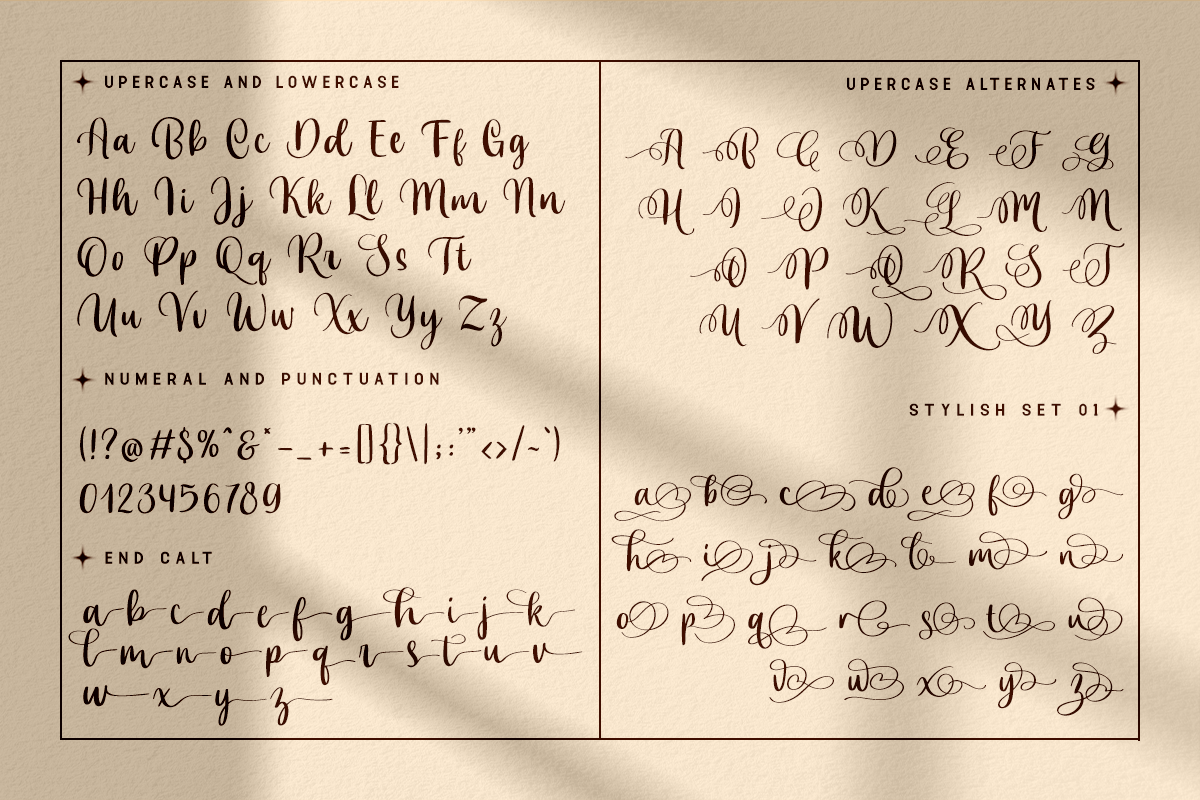 UPERCASE AND LOWERCASE
Aa Bb Cc Dd Ee Ff Gg
Hh Ii Jj Kk Ll Mm Nn
Oo Pp Qq Rr Ss Tt
Uu Vv Ww Xx Yy Zz
NUMERAL AND PUNCTUATION
(!?@#$%^&*-_+=[]{}\|;:'"<>/~`)
0123456789
END CALT
a b c d e f g h i j k
l m n o p q r s t u v
w x y z
UPERCASE ALTERNATES
A B C D E F G
H I J K L M N
O P Q R S T
U V W X Y Z
STYLISH SET 01
a b c d e f g
h i j k l m n
o p q r s t u
v w x y z